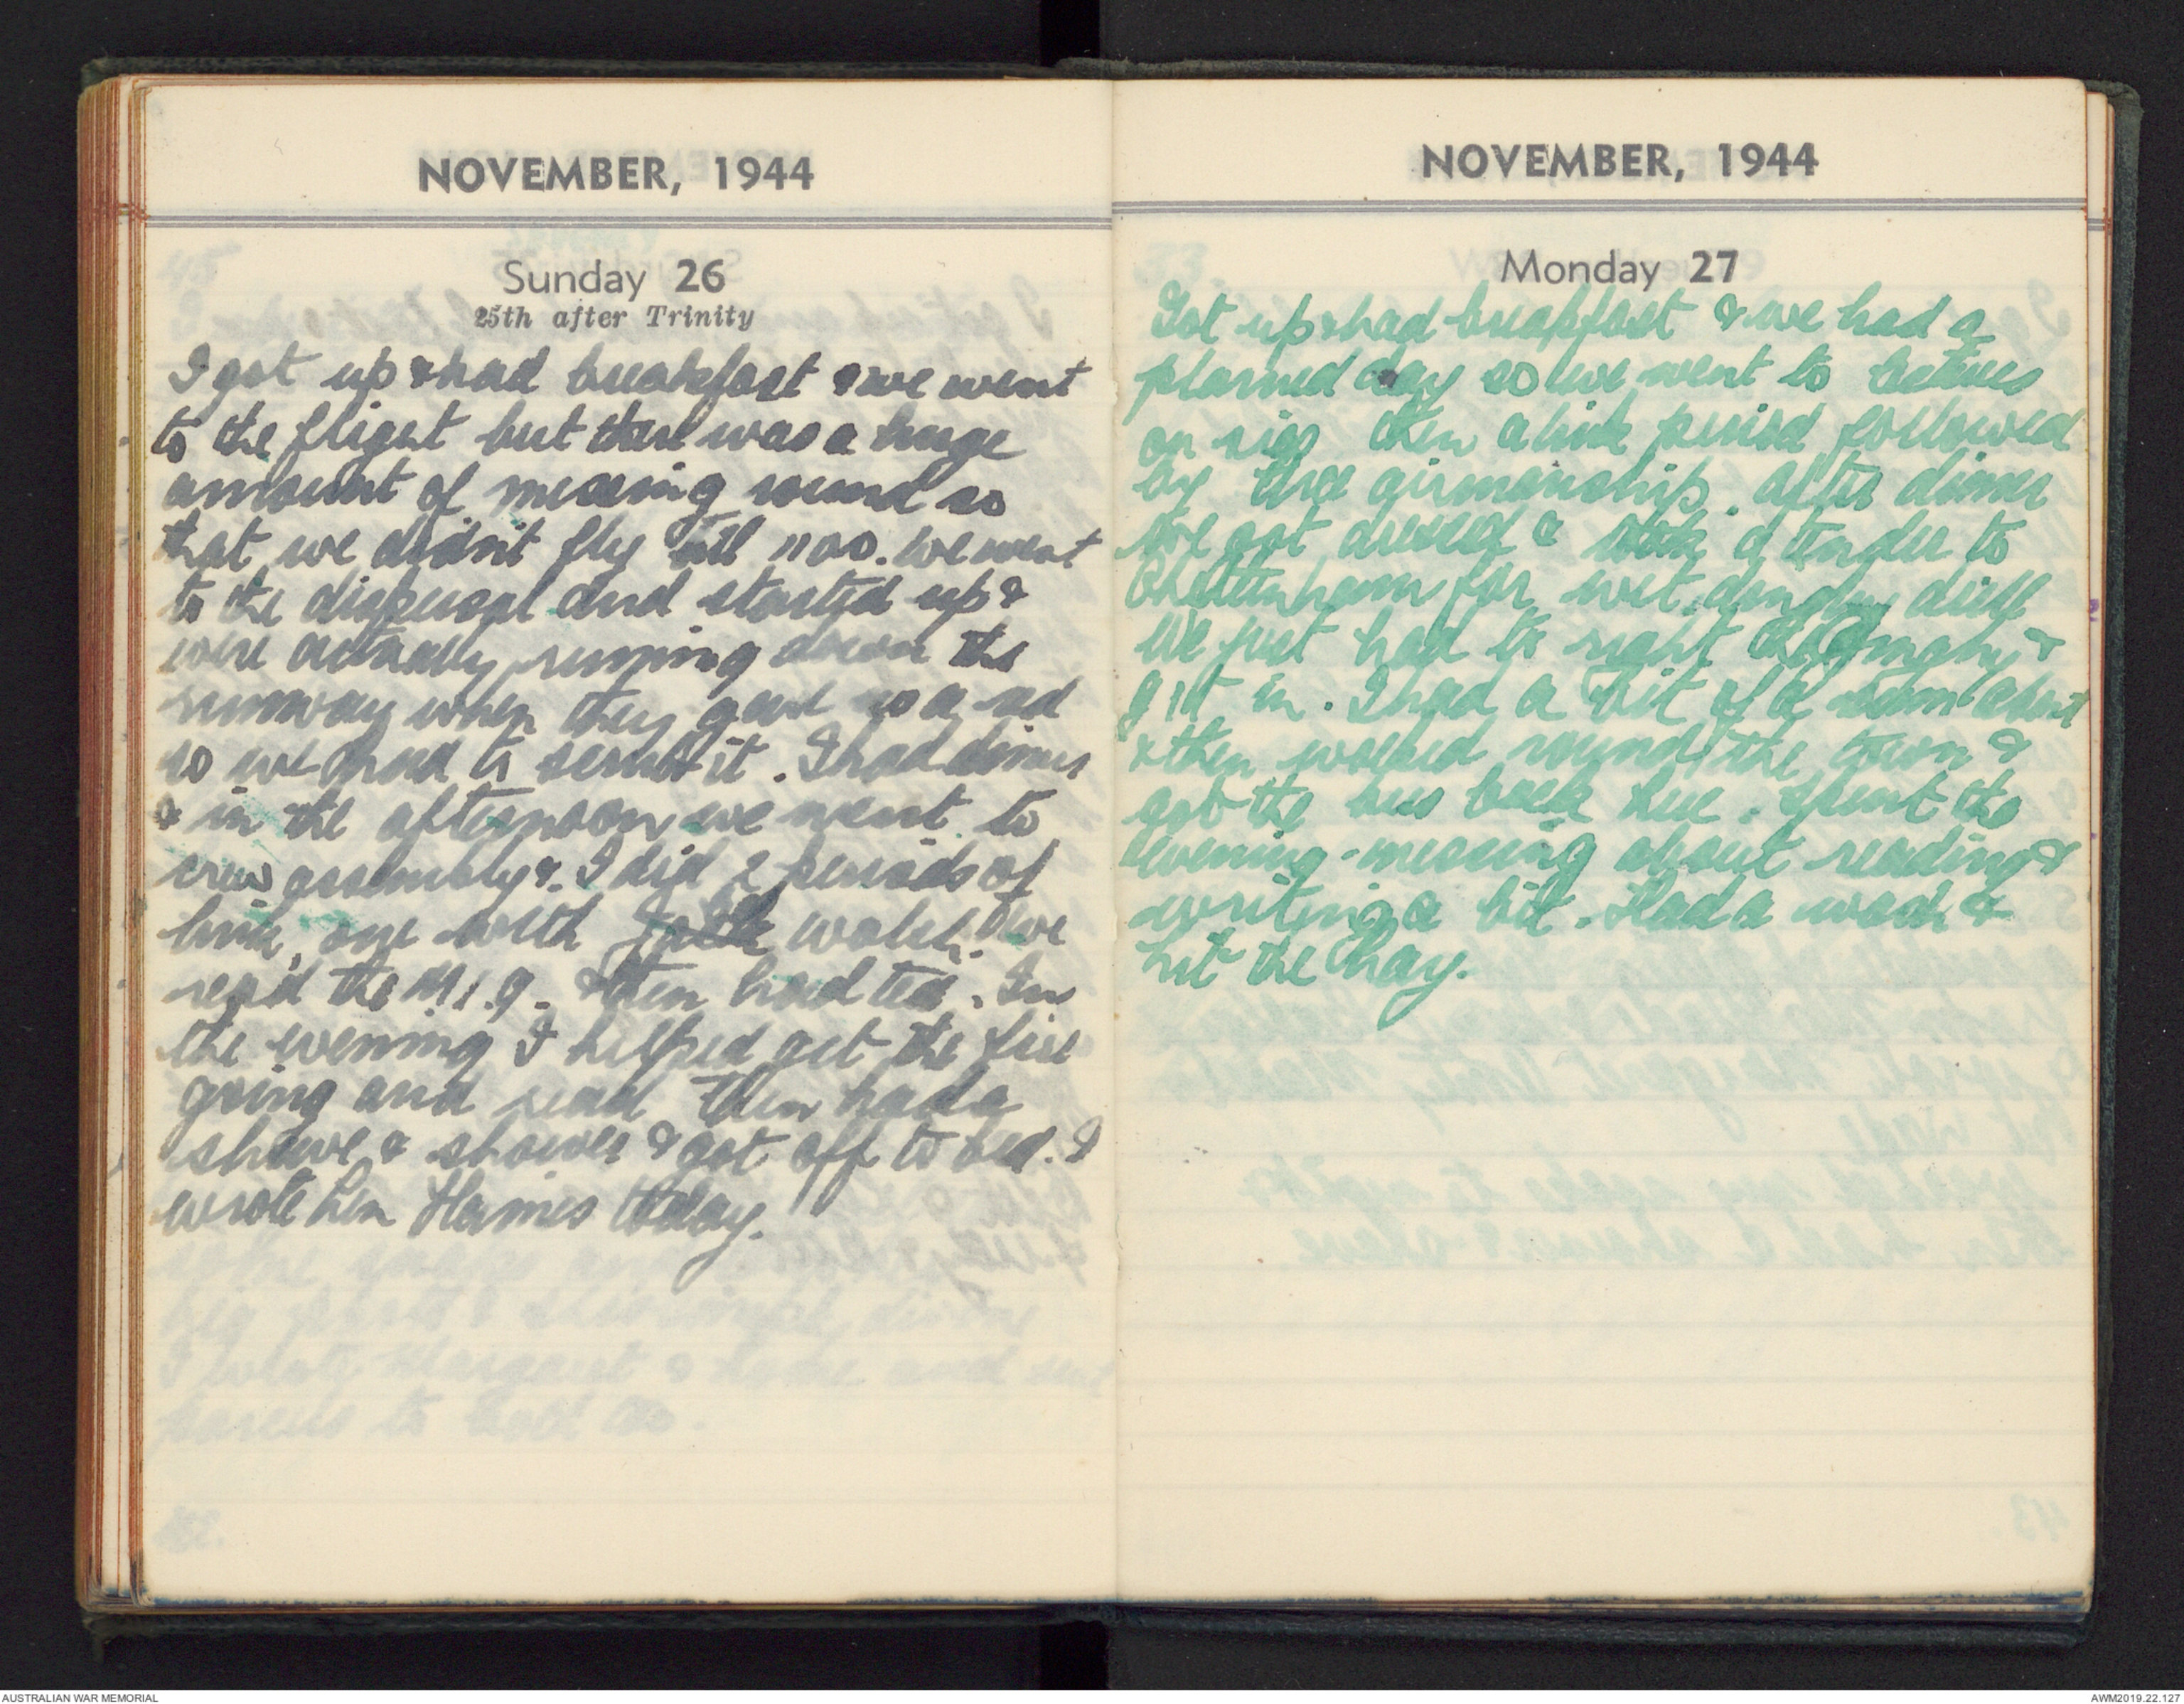 NOVEMBER, 1944
Sunday 26
25th after Trinity
I got up & had breakfast & we went
to the flight but there was a huge
amount of messing round so
that we didn't fly till 1100. We went
to the dispersal and started up &
were actually running down the
runway when they gave us a red
so we had to scrub it. I had dinner
& in the afternoon we went to
crew assembly &. I did 2 periods of
link, one with Walsh. We
the M.1.9. & then had tea. In
the evening I helped get the fire
going and read then had a
shave & shower & got off to bed. I
wrote Len Harries today.
NOVEMBER, 1944
Monday 27
Got up & had breakfast & we had a
planned day so we went to lectures
on sigs then a link period followed
by airmanship. After dinner
we got dressed & took a tender to
Cheltenham for wet dinghy drill
We just had to right the dinghy &
git in. I had a bit of a swim about
& then walked round the town &
got the bus back here. Spent the
evening messing about reading &
writing a bit. Had a wash &
hit the hay.
AUSTRALIAN WAR MEMORIAL
AWM2019.22.127